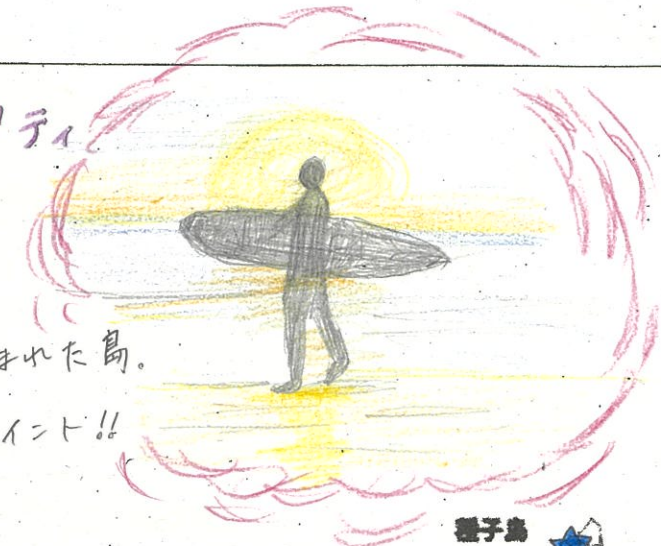 ティ
まれた島。
イント!!
種子島